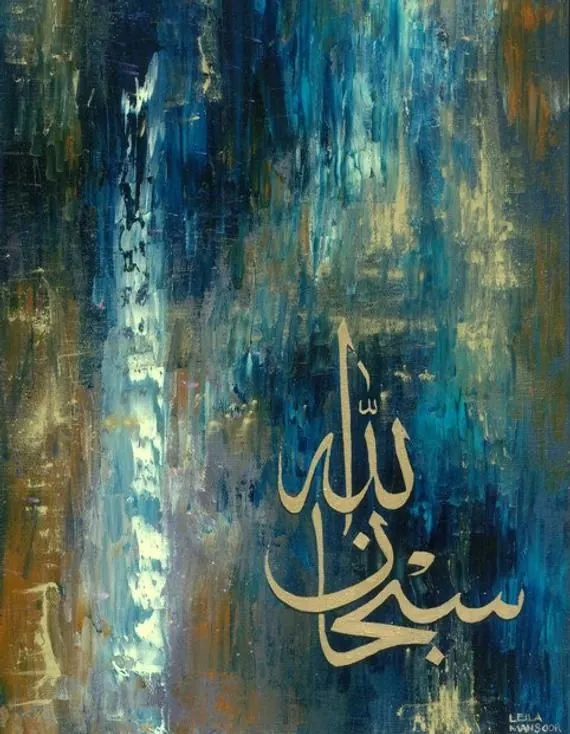 سبحان الله
LEILA
MANSOOR